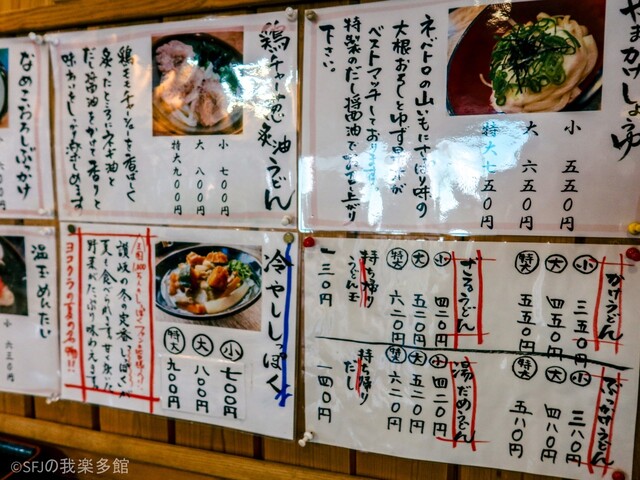 やまかけしょうゆ
ネバトロの山いもにさっぱり味の
大根おろしとゆず果汁が
ベストマッチしております。
特製のだし醤油で
下さい。
小 五五〇円
大 六五〇円
特大七五〇円
鶏チャー葱油うどん
鶏モモチャーシューを香ばしく
炙ったところにネギ油と
だし醤油をかけて香りと
味わいをしめます
小 七〇〇円
大 八〇〇円
特大九〇〇円
なめこおろしぶっかけ
温玉めんたい
小 六五〇円
冷やししっぽく
小 七〇〇円
大 八〇〇円
特大 九〇〇円
讃岐の冬の定番しっぽくが
夏も食べられます。甘く炊いた
野菜がたっぷり味わえます。
ヨコクラの夏の名物!!
かけうどん
小 三五〇円
大 四五〇円
特大 五五〇円
ざるうどん
小 四二〇円
大 五二〇円
特大 六二〇円
持ち帰り
うどん玉
一三〇円
ぶっかけうどん
小 三八〇円
大 四八〇円
特大 五八〇円
湯だめうどん
小 四二〇円
大 五二〇円
特大 六二〇円
持ち帰り
だし
一四〇円
©SFJの我楽多館